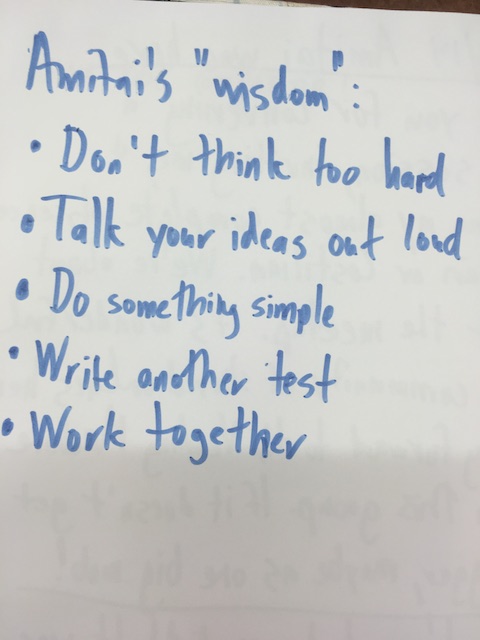 Amitai's "wisdom":
• Don't think too hard
• Talk your ideas out loud
• Do something simple
• Write another test
• Work together